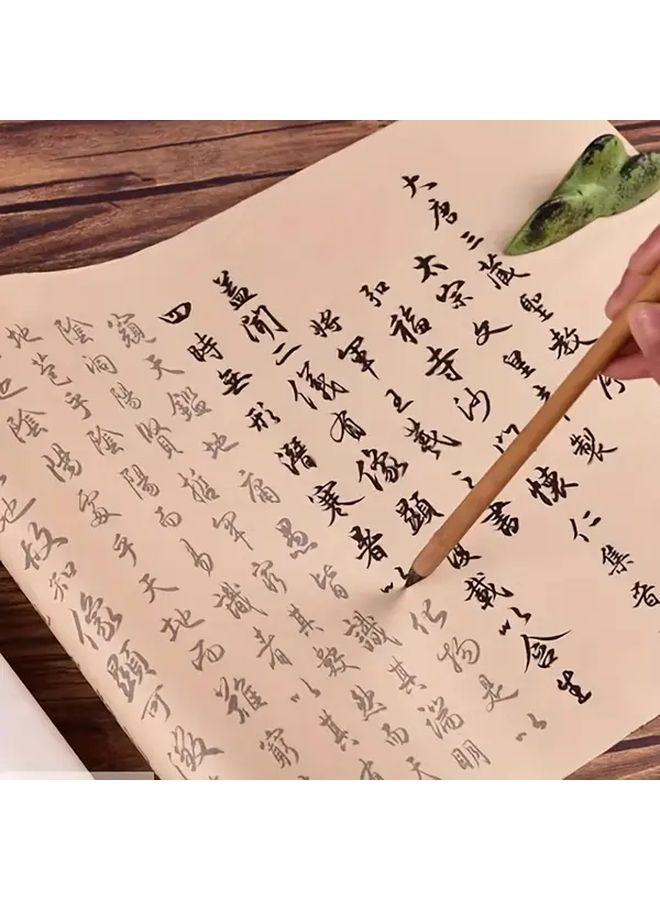 大唐三藏聖教序
太宗文皇製
弘福寺沙門懷仁集晉
將軍王羲之書
蓋聞二儀有像顯覆載以含生
四時無形潛寒暑以化物是以
窺天鑑地庸愚皆識其端明
陰洞陽賢哲罕窮其數然而天
地苞乎陰陽而易識者以其有
也陰陽處乎天地而難窮
也故知像顯可徵